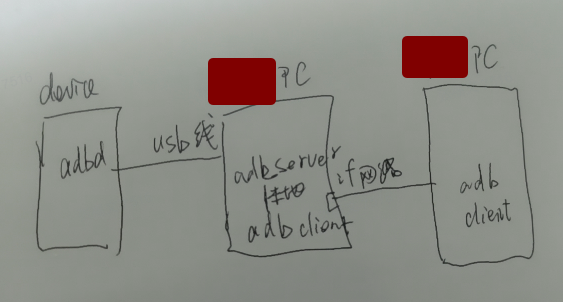 device
adbd
usb线
PC
adb server
adb client
PC
adb
client